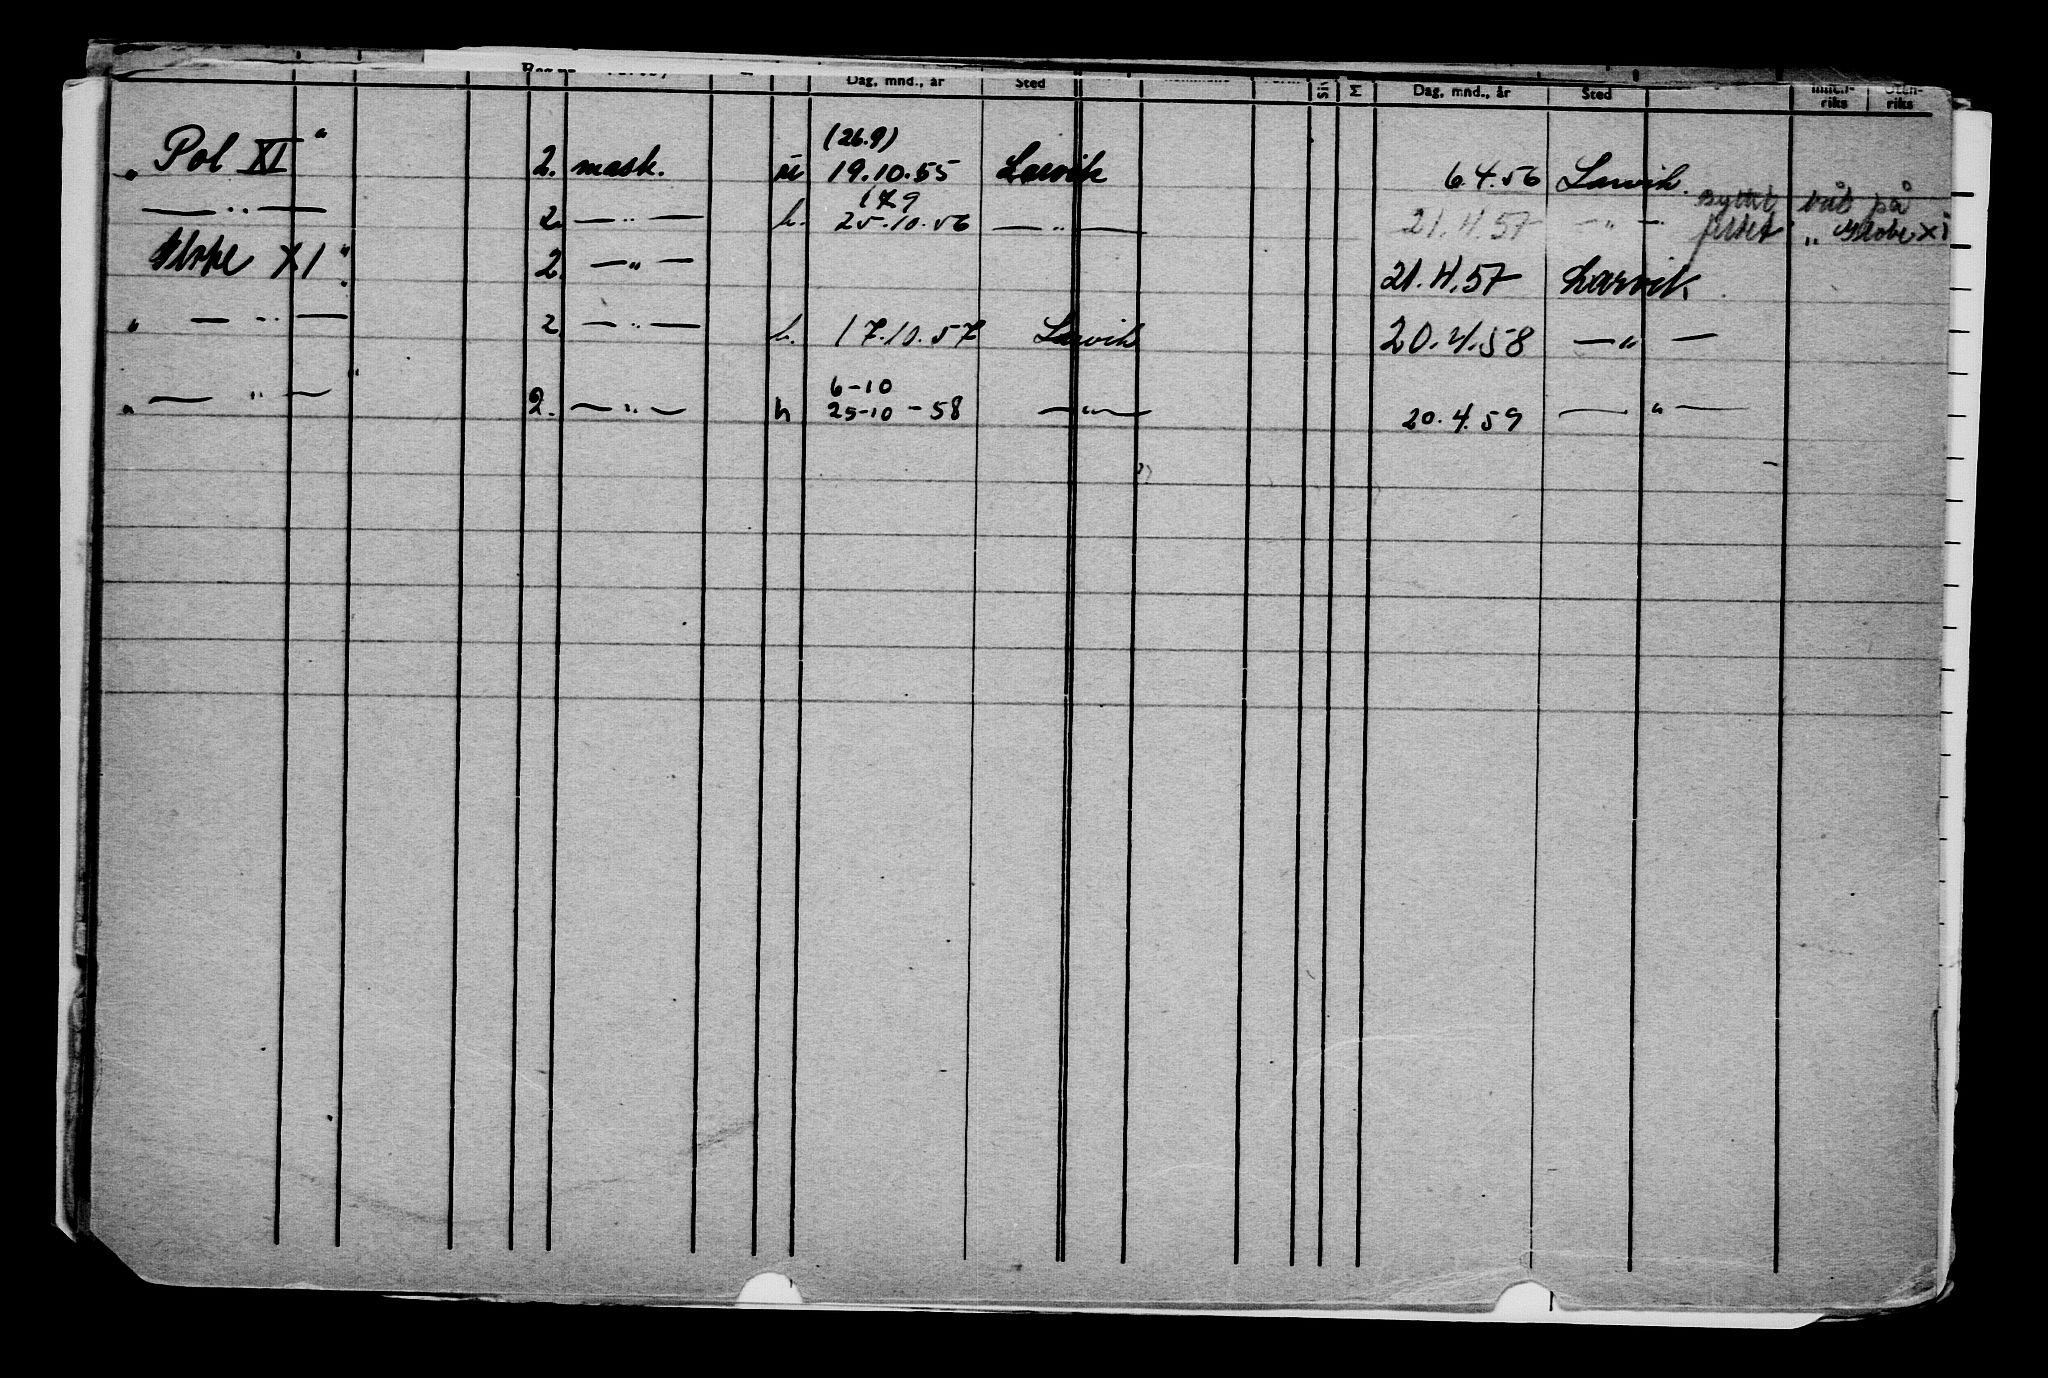 Dag, mnd., år Sted Dag, mnd., år Sted riks riks
(26.9)
„ Pol XI “ 2. mask. 19.10.55 Larvik 6.4.56 Larvik.
17.9
— „ — 2. — „ — h. 25.10.56 — „ — 21.4.57 — „ — byttet båt på
feltet „ Globe XI
Globe XI “ 2. — „ — 21.4.57 Larvik
„ — „ — 2. — „ — h. 17.10.57 Larvik 20.4.58 — „ —
6-10
„ — „ — “ 2. — „ — h 25-10-58 — „ — 20.4.59 — „ —